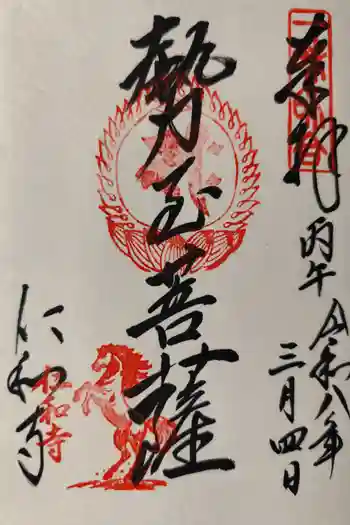 奉拝
丙午
令和八年
三月四日
勢至菩薩
仁和寺
仁和寺